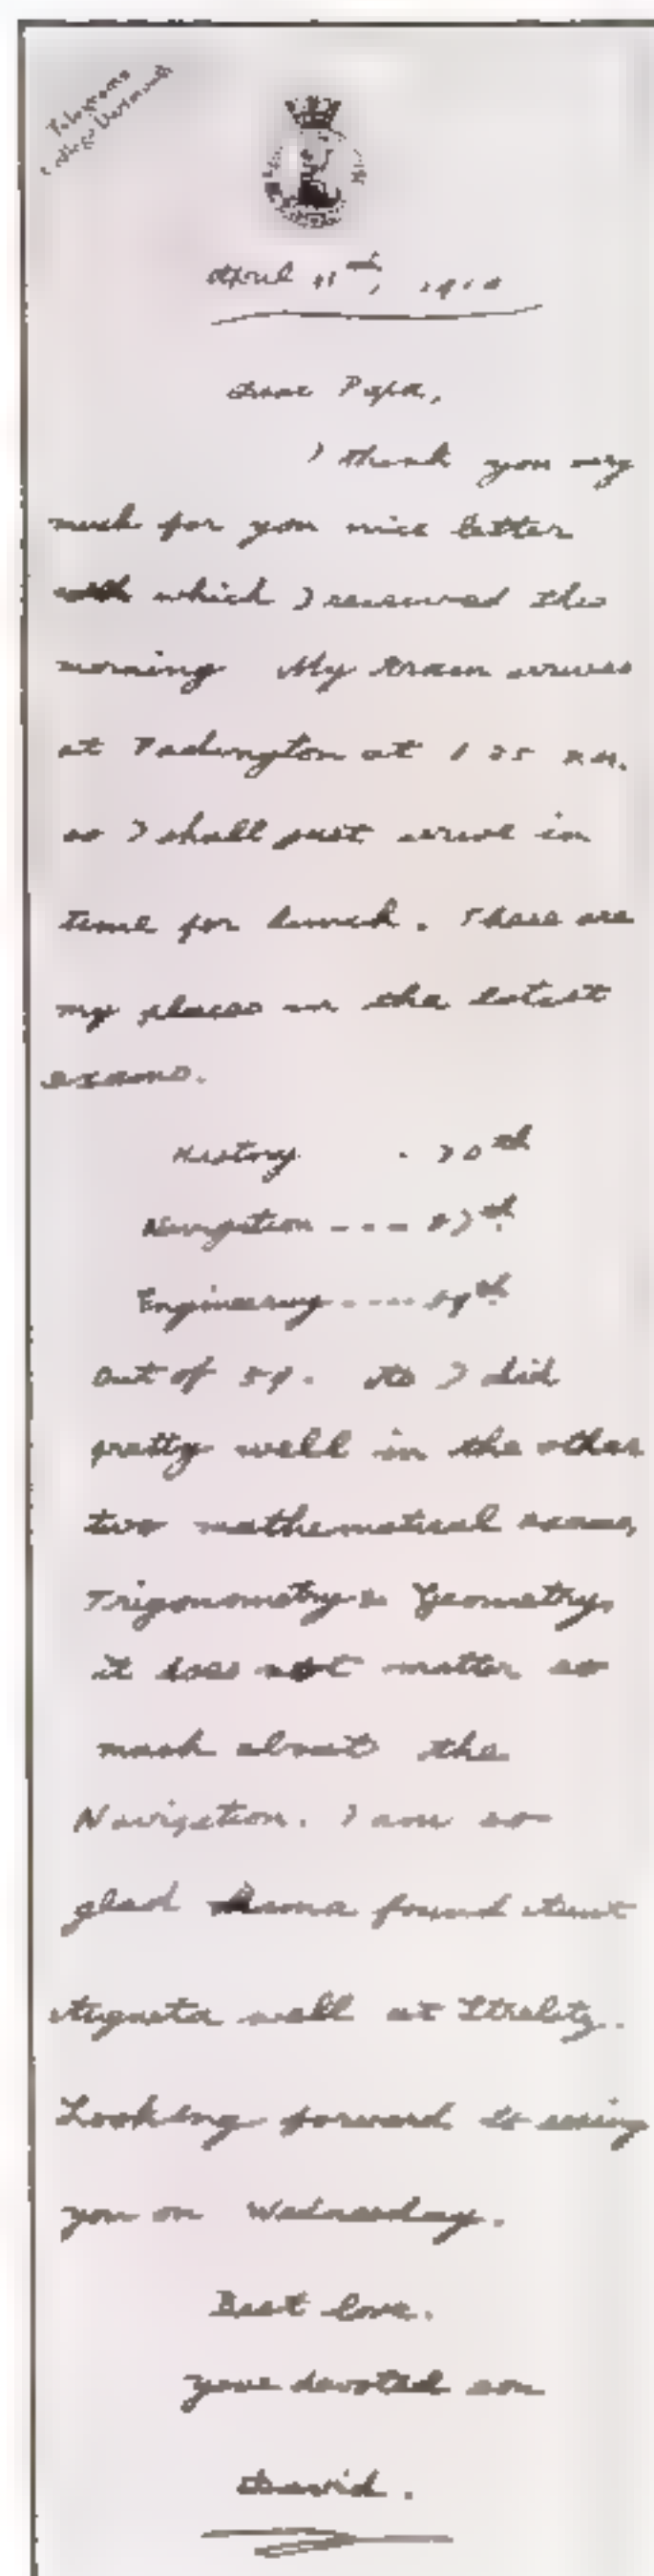 Telegrams
College Dartmouth
April 11th, 1910
Dear Papa,
I thank you very
much for you nice letter
which I received this
morning My train arrives
at Padington at 1 25 P.M.
so I shall just arrive in
time for lunch. These are
my places in the latest
exams.
History
Navigation ----
Engineering ----
Out of 59. As I did
pretty well in the other
two mathematical exams,
Trigonometry & Geometry,
it does not matter so
much about the
Navigation. I am so
glad Mama found Aunt
Augusta well at Strelitz.
Looking forward to seeing
you on Wednesday.
Best love.
your devoted son
David.